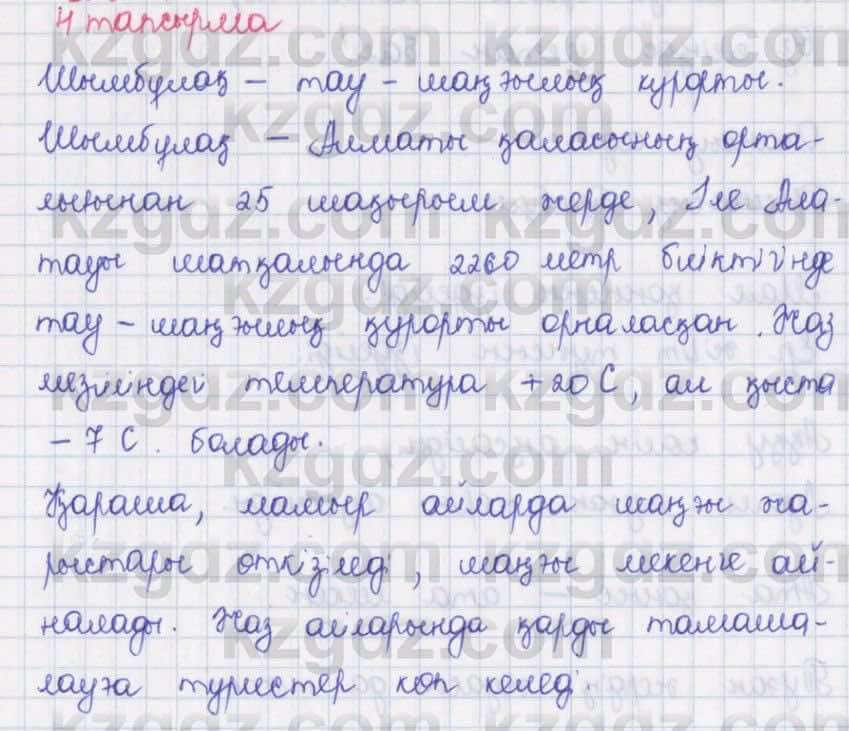 4 тапсырма
Шымбұлақ – тау – шаңғылық курорты.
Шымбұлақ – Алматы қаласының орта-
лығынан 25 шақырым жерде, Іле Ала-
тауы шатқалында 2260 метр биіктігінде
тау – шаңғылық курорты орналасқан. Жаз
мезгіліндегі температура +20 С, ал қыста
– 7 С. болады.
Қараша, мамыр айларда шаңғы жа-
рыстары өткізіледі, шаңғы мекенге ай-
налады. Жаз айларында қарды тамаша-
лауға туристер көп келеді
kzgdz.com